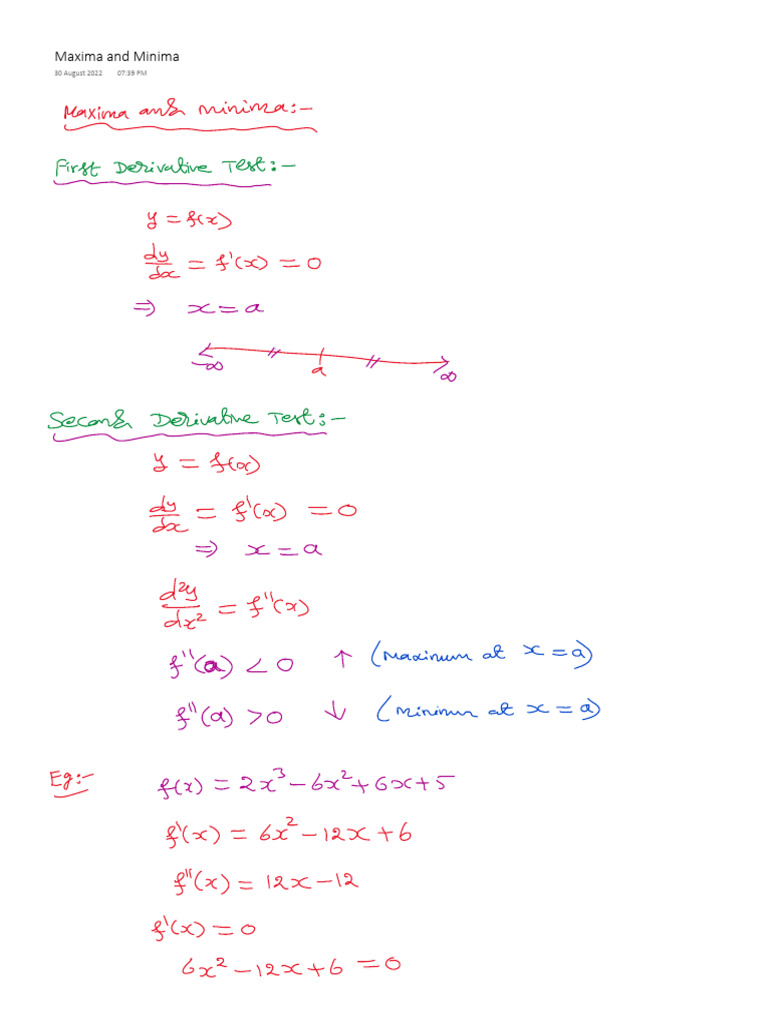 Maxima and Minima
30 August 2022 07:39 PM
Maxima and Minima:-
First Derivative Test:-
y = f(x)
dy/dx = f'(x) = 0
⇒ x = a
-∞ a ∞
Second Derivative Test:-
y = f(x)
dy/dx = f'(x) = 0
⇒ x = a
d²y/dx² = f''(x)
f''(a) < 0 ↑ (Maximum at x = a)
f''(a) > 0 ↓ (Minimum at x = a)
Eg:- f(x) = 2x³ - 6x² + 6x + 5
f'(x) = 6x² - 12x + 6
f''(x) = 12x - 12
f'(x) = 0
6x² - 12x + 6 = 0